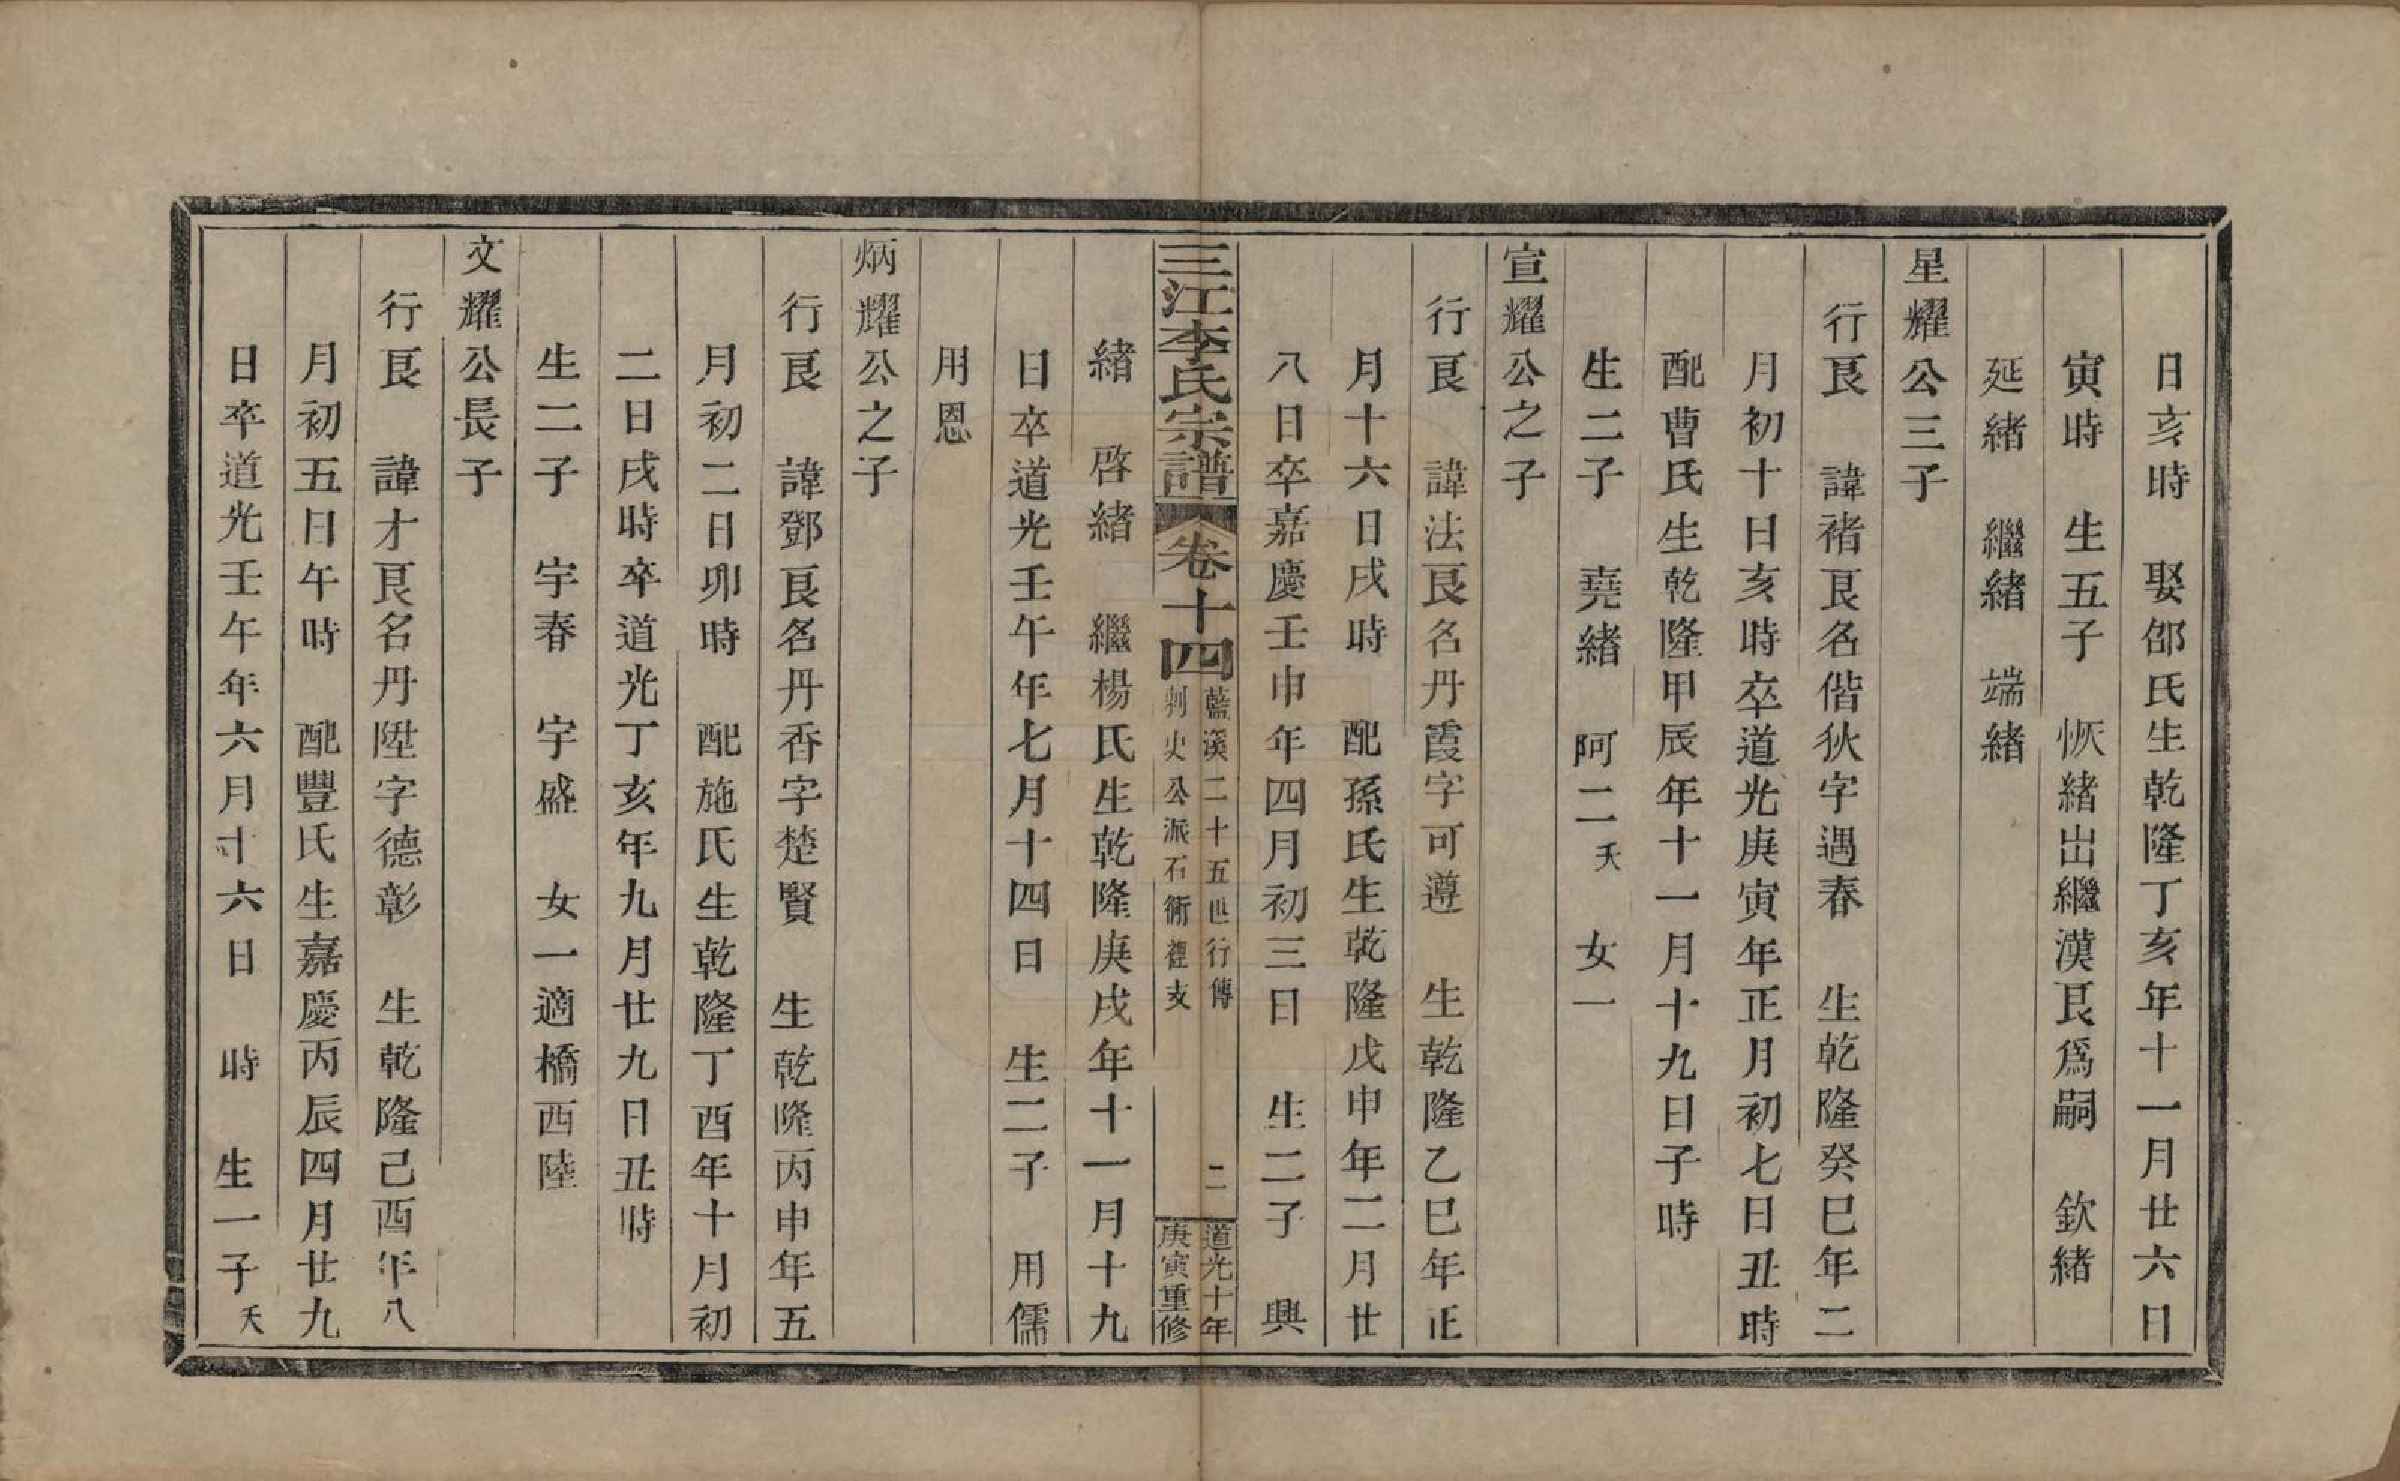 日亥時　娶邵氏生乾隆丁亥年十一月廿六日
寅時　生五子　恢緒出繼漢艮爲嗣　欽緒
延緒　繼緒　端緒
星耀公三子
行艮　諱褚艮名偕狄字遇春　生乾隆癸巳年二
月初十日亥時卒道光庚寅年正月初七日丑時
配曹氏生乾隆甲辰年十一月十九日子時
生二子　堯緒　阿二夭　女一
宣耀公之子
行艮　諱法艮名丹霞字可遵　生乾隆乙巳年正
月十六日戌時　配孫氏生乾隆戊申年二月廿
八日卒嘉慶壬申年四月初三日　生二子　興
三江李氏宗譜　卷十四　藍溪二十五世行傳
判史公派石衕裡支　二　道光十年
庚寅重修
緒　啓緒　繼楊氏生乾隆庚戌年十一月十九
日卒道光壬午年七月十四日　生二子　用儒
用恩
炳耀公之子
行艮　諱鄧艮名丹香字楚賢　生乾隆丙申年五
月初二日卯時　配施氏生乾隆丁酉年十月初
二日戌時卒道光丁亥年九月廿九日丑時
生二子　宇春　宇盛　女一適橋西陸
文耀公長子
行艮　諱才艮名丹陞字德彰　生乾隆己酉年八
月初五日午時　配豐氏生嘉慶丙辰四月廿九
日卒道光壬午年六月十六日　時　生一子夭